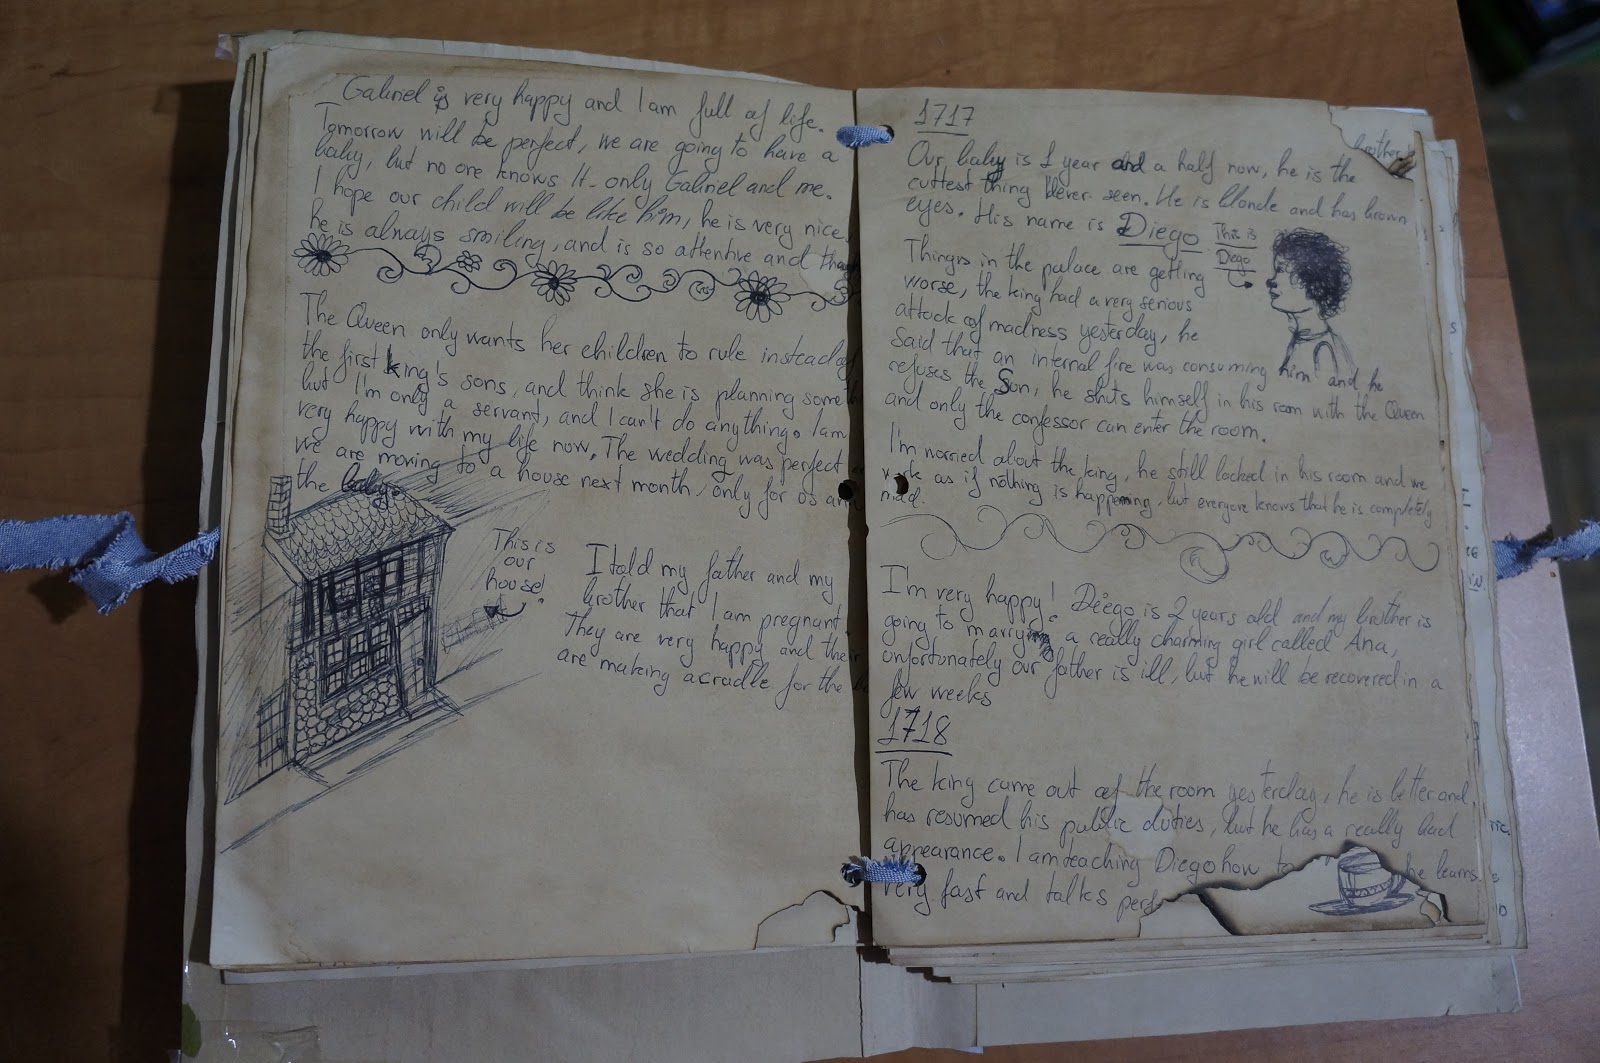 Gabriel is very happy and I am full of life.
Tomorrow will be perfect, we are going to have a
baby, but no one knows It - only Gabriel and me.
I hope our child will be like him, he is very nice,
he is always smiling, and is so attentive and
The Queen only wants her children to rule instead of
the first king's sons, and think she is planning
but I'm only a servant, and I can't do anything. I am
very happy with my life now. The wedding was perfect
we are moving to a house next month, only for us
the baby.
This is
our
house!
I told my father and my
brother that I am pregnant.
They are very happy and
are making a cradle for the
1717
brother
Our baby is 1 year and a half now, he is the
cuttest thing I never seen. He is blonde and has brown
eyes. His name is Diego
This is
Diego
Things in the palace are getting
worse, the king had a very serious
attack of madness yesterday, he
said that an internal fire was consuming him and he
refuses the Sun, he shuts himself in his room with the Queen
and only the confessor can enter the room.
I'm worried about the king, he still locked in his room and we
work as if nothing is happening, but everyone knows that he is completely
mad.
I'm very happy! Diego is 2 years old and my brother is
going to marry a really charming girl called Ana,
unfortunately our father is ill, but he will be recovered in a
few weeks
1718
The king came out of the room yesterday, he is better and
has resumed his public duties, but he has a really bad
appearance. I am teaching Diego how to he learns
very fast and talks